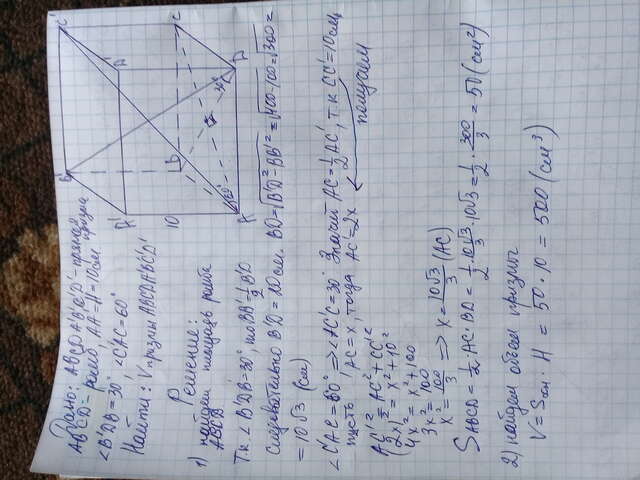 Дано: ABCDA'B'C'D' - прямая призма
ABCD - ромб, AA' = H = 10 см
∠B'DB = 30°, ∠C'AC = 60°
Найти: V призмы ABCDA'B'C'D'
Решение:
1) найдем площадь ромба
ABCD
Т.к. ∠B'DB = 30°, то BB' = 1/2 B'D
Следовательно B'D = 20 см. BD = √(B'D² - BB'²) = √(400-100) = √300 =
= 10√3 (см)
∠C'AC = 60°, ⇒ ∠AC'C = 30° Значит AC = 1/2 AC', т.к. CC' = 10 см,
пусть AC = x, тогда AC' = 2x
получаем
AC'² = AC² + CC'²
(2x)² = x² + 10²
4x² = x² + 100
3x² = 100
x² = 100/3 ⇒ x = 10√3/3 (AC)
S ABCD = 1/2 · AC · BD = 1/2 · 10√3/3 · 10√3 = 1/2 · 300/3 = 50 (см²)
2) найдем объем призмы
V = Sосн · H = 50 · 10 = 500 (см³)
B'
C'
A'
D'
10
B
C
A
60°
30°
D